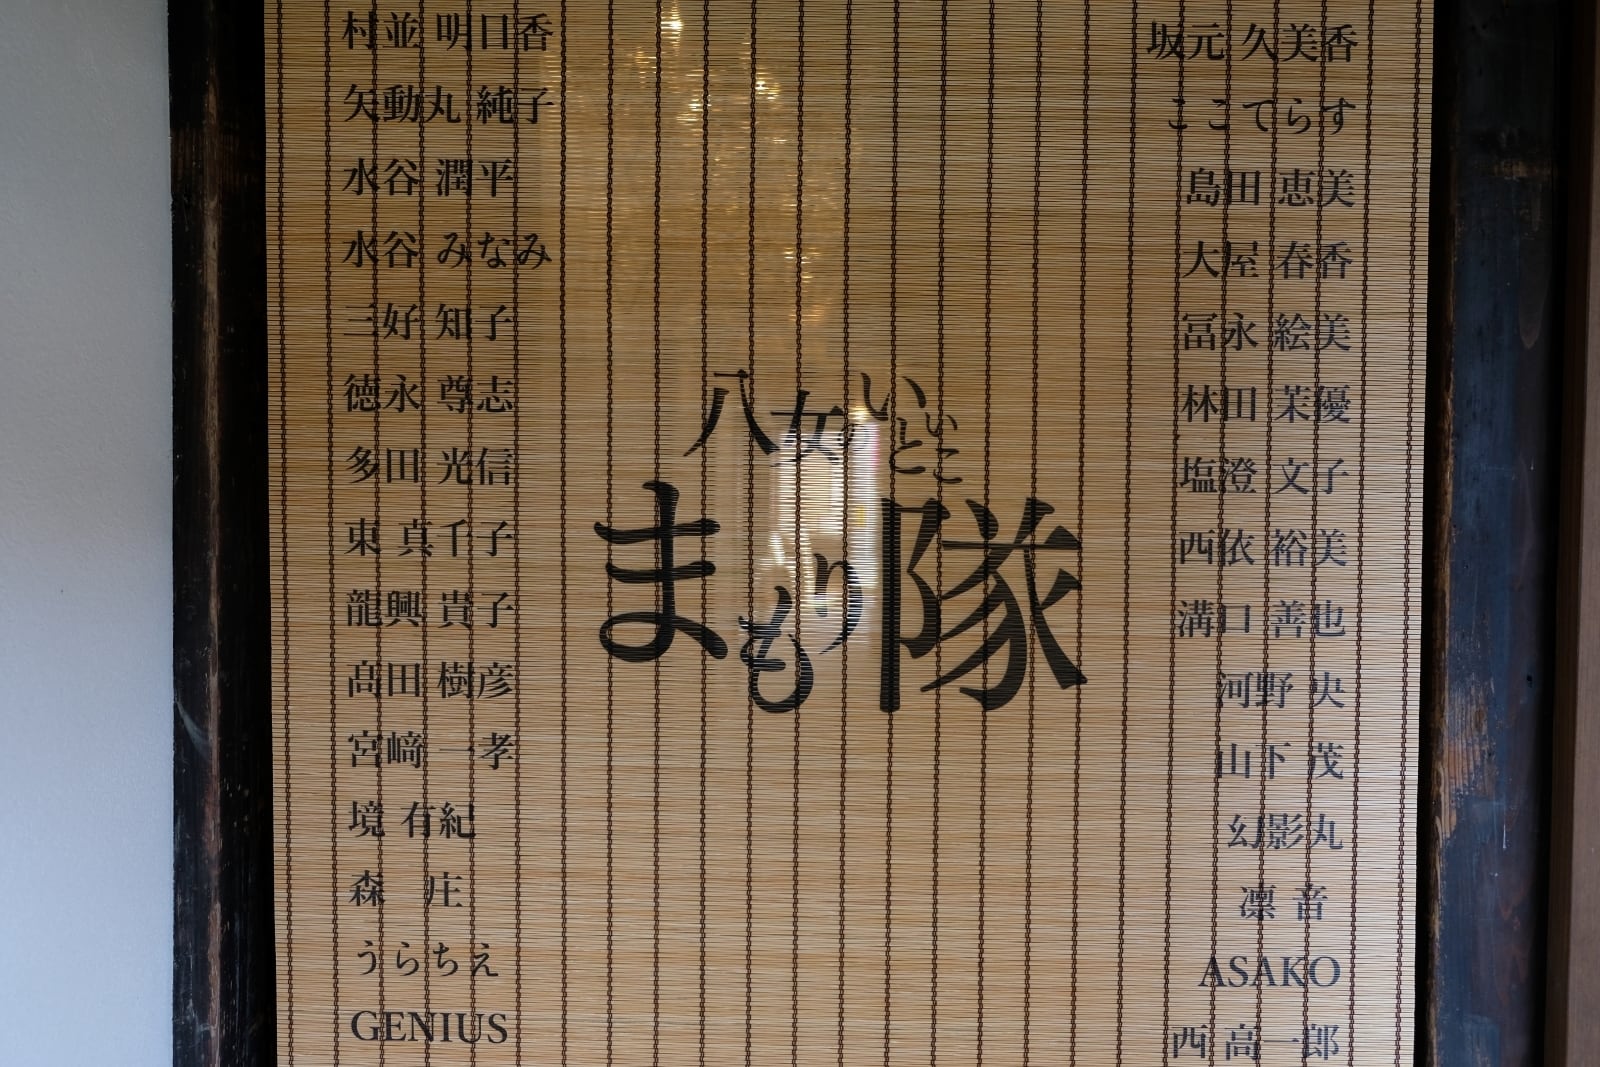 村並 明日香
矢動丸 純子
水谷 潤平
水谷 みなみ
三好 知子
徳永 尊志
多田 光信
東 真千子
龍興 貴子
髙田 樹彦
宮﨑 一孝
境 有紀
森 庄
うらちえ
GENIUS
八女いいとこ
まもり隊
坂元 久美香
ここてらす
島田 恵美
大屋 春香
冨永 絵美
林田 茉優
塩澄 文子
西依 裕美
溝口 善也
河野 央
山下 茂
幻影丸
凛音
ASAKO
西 高一郎